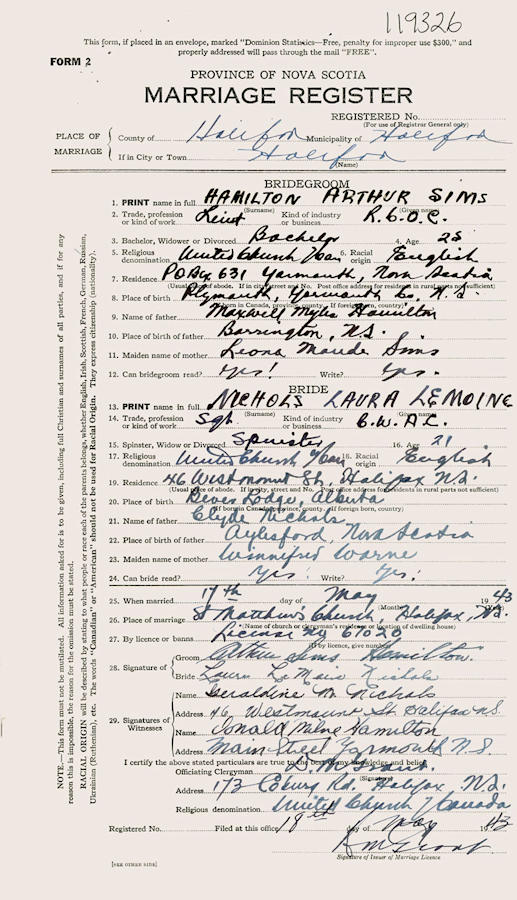 119326
This form, if placed in an envelope, marked "Dominion Statistics—Free, penalty for improper use $300," and
properly addressed will pass through the mail "FREE".
FORM 2
PROVINCE OF NOVA SCOTIA
MARRIAGE REGISTER
REGISTERED No.
(For use of Registrar General only)
PLACE OF MARRIAGE
County of Halifax Municipality of Halifax
If in City or Town Halifax
(Name)
BRIDEGROOM
1. PRINT name in full HAMILTON ARTHUR SIMS
(Surname) (Given name)
2. Trade, profession or kind of work Lieut Kind of industry or business R.C.O.C.
3. Bachelor, Widower or Divorced Bachelor 4. Age 25
5. Religious denomination United Church Can 6. Racial origin English
7. Residence PO Box 631 Yarmouth, Nova Scotia
(Usual place of abode. If in city, street and No. Post office address for residents in rural parts not sufficient)
8. Place of birth Plymouth, Yarmouth Co. N.S.
(If born in Canada, province, county; if foreign born, country)
9. Name of father Maxwell Myles Hamilton
10. Place of birth of father Barrington, N.S.
11. Maiden name of mother Leona Maude Sims
12. Can bridegroom read? Yes! Write? Yes.
BRIDE
13. PRINT name in full NICHOLS LAURA LEMOINE
(Surname) (Given name)
14. Trade, profession or kind of work Sgt. Kind of industry or business C.W.A.C.
15. Spinster, Widow or Divorced Spinster 16. Age 21
17. Religious denomination United Church Can 18. Racial origin English
19. Residence 46 Westmount St, Halifax N.S.
(Usual place of abode. If in city, street and No. Post office address for residents in rural parts not sufficient)
20. Place of birth Lodge, Alberta
(If born in Canada, province, county; if foreign born, country)
21. Name of father Clyde Nichols
22. Place of birth of father Aylesford, Nova Scotia
23. Maiden name of mother Winnifred Warne
24. Can bride read? Yes! Write? Yes!
25. When married 17th day of May 1943
(Month) (Year)
26. Place of marriage St Matthew's Church, Halifax, N.S.
(Name of church or clergyman's residence or location of dwelling house)
27. By licence or banns License No 61020
(If by licence, give number)
28. Signature of
Groom Arthur Sims Hamilton.
Bride Laura LeMoine Nichols
29. Signatures of Witnesses
Name Geraldine M. Nichols
Address 46 Westmount St. Halifax N.S.
Name Donald Milne Hamilton
Address Main Street Yarmouth N.S.
I certify the above stated particulars are true to the best of my knowledge and belief
Officiating Clergyman Grant.
(Signature)
Address 173 Coburg Rd. Halifax N.S.
Religious denomination United Church / Canada
Registered No. Filed at this office 18th day of May 1943
Grant
Signature of Issuer of Marriage Licence
[SEE OTHER SIDE]
NOTE.—This form must not be mutilated. All information asked for is to be given, including full Christian and surnames of all parties, and if for any
reason this is impossible, the reason for the omission must be stated.
RACIAL ORIGIN will be described by stating to what people or race each of the parents belongs, whether English, Irish, Scottish, French, German, Russian,
Ukrainian (Ruthenian), etc. The words "Canadian" or "American" should not be used for Racial Origin. They express citizenship (nationality).